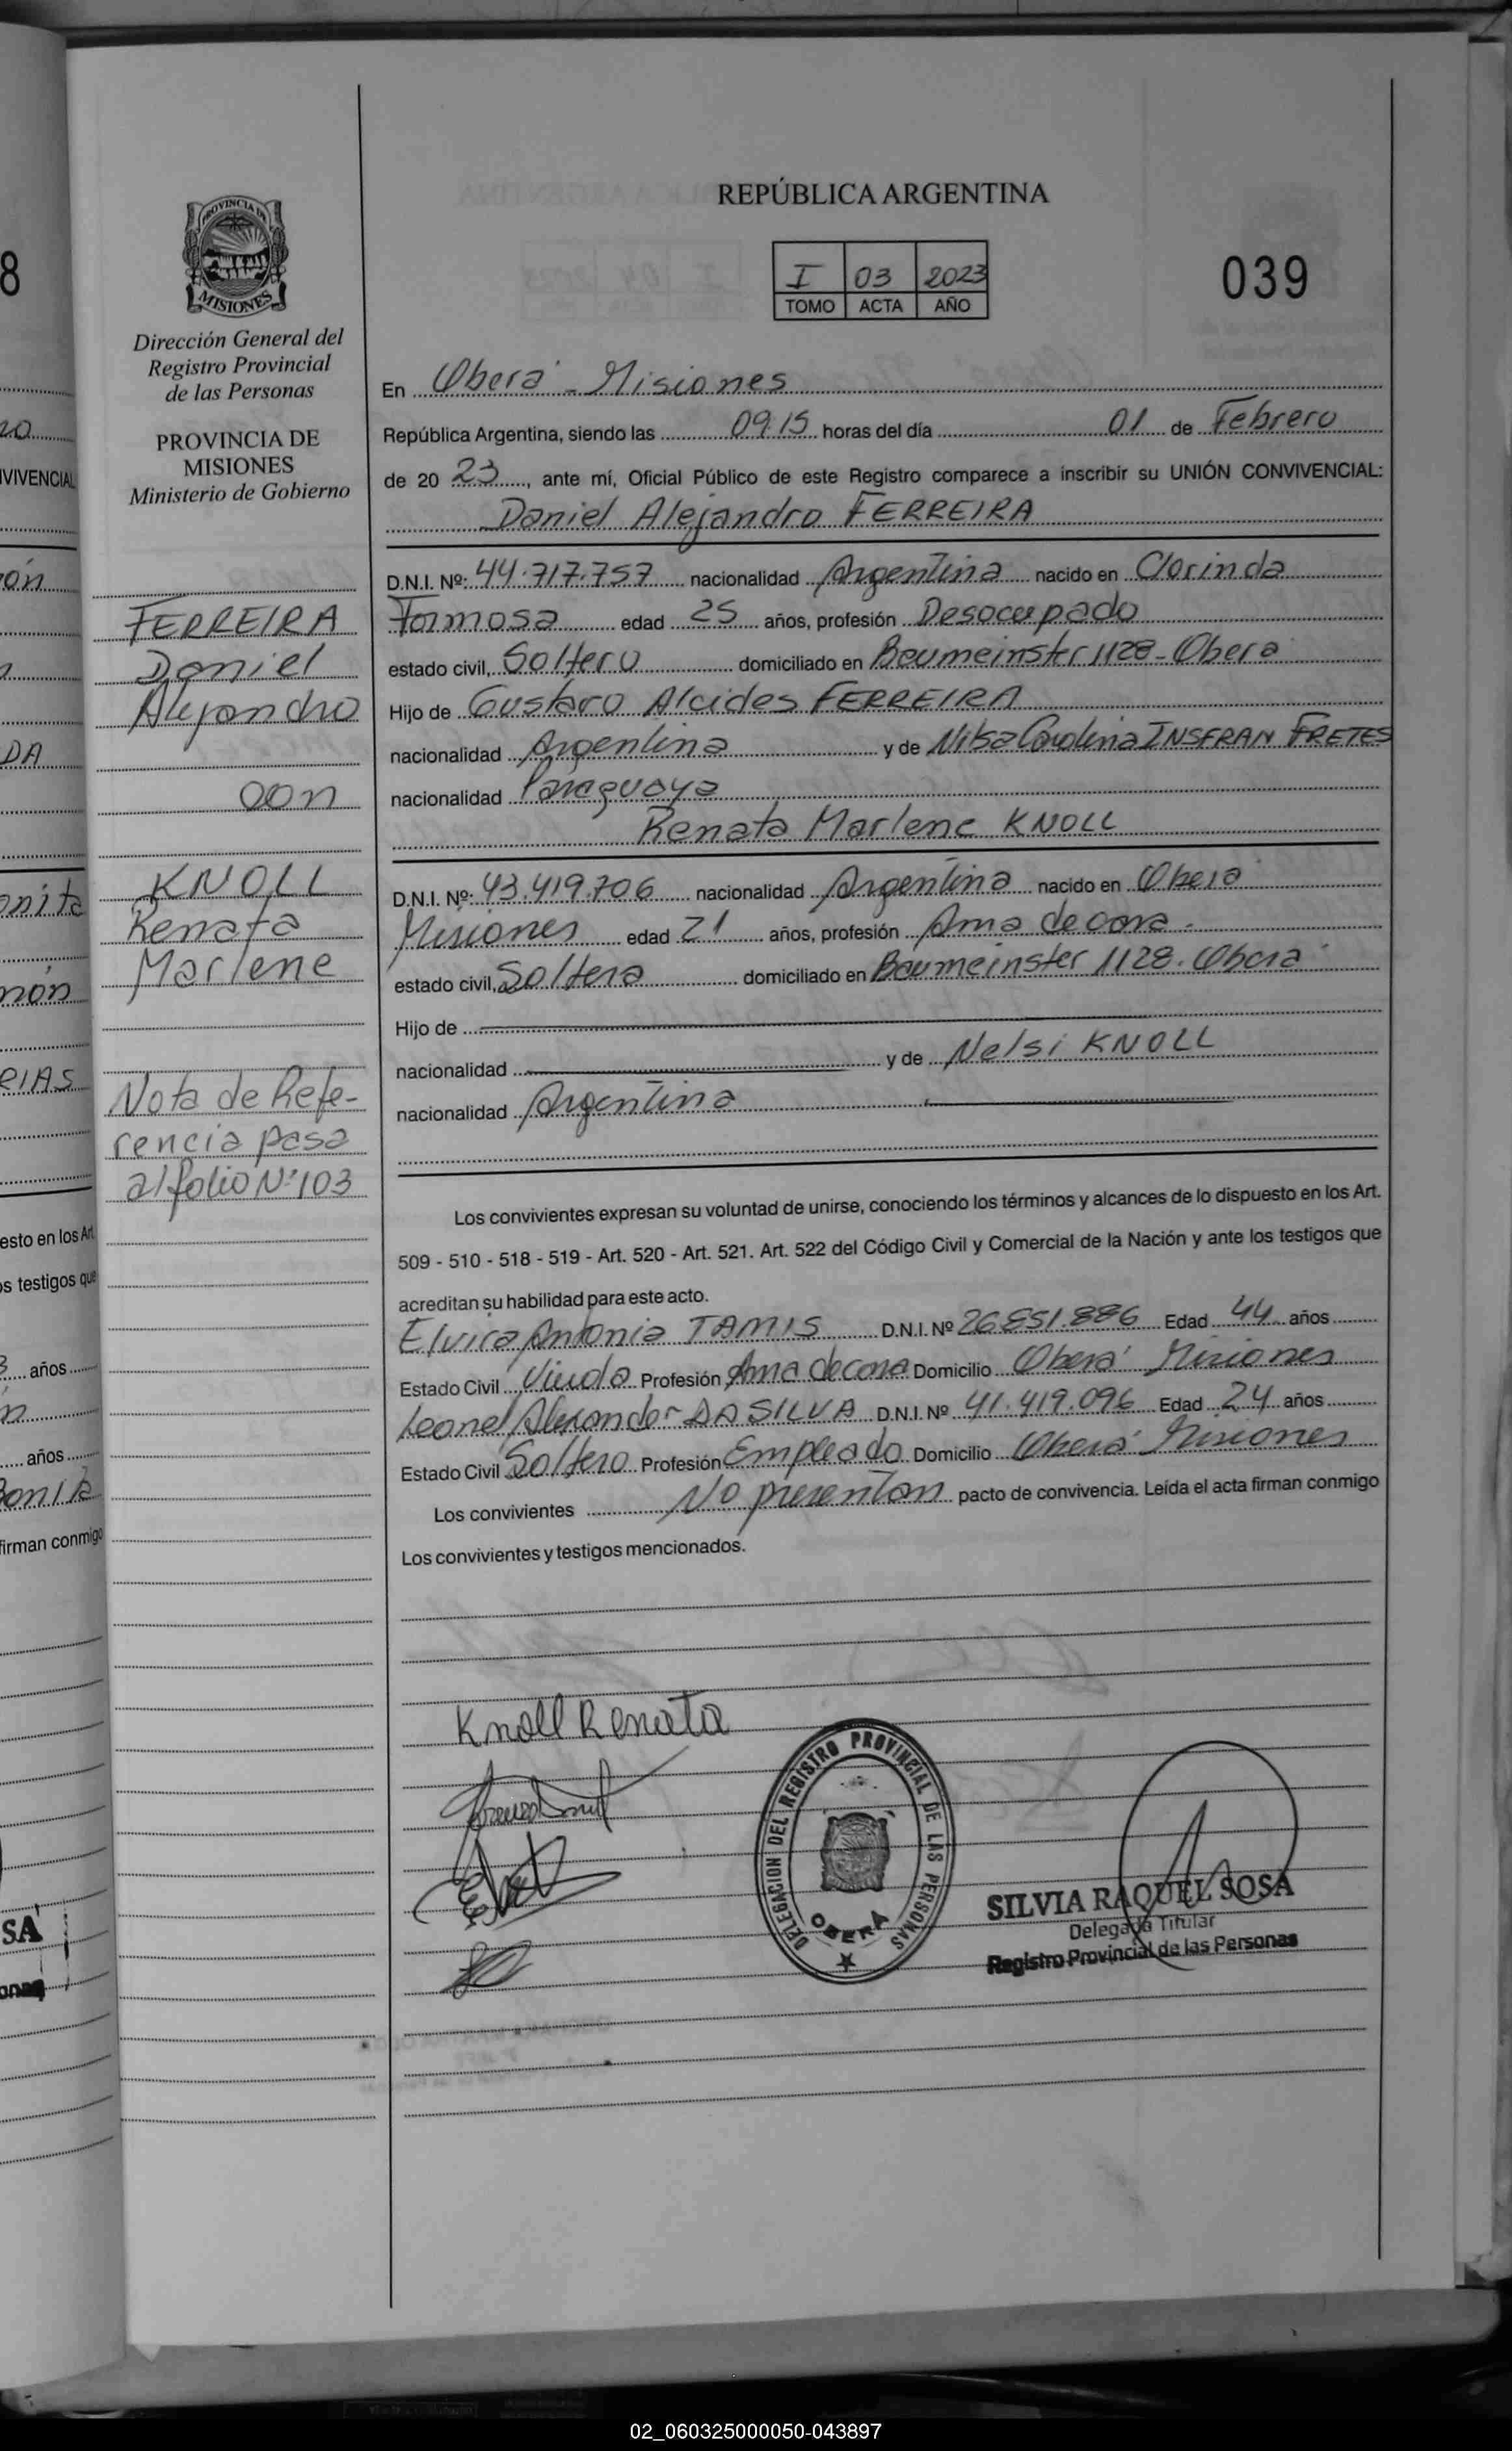 REPÚBLICA ARGENTINA
I 03 2023
TOMO ACTA AÑO
039
PROVINCIA DE
MISIONES
Dirección General del
Registro Provincial
de las Personas
PROVINCIA DE
MISIONES
Ministerio de Gobierno
FERREIRA
Daniel
Alejandro
con
KNOLL
Renata
Marlene
Nota de Refe-
rencia pasa
al folio Nº 103
En Oberá - Misiones
República Argentina, siendo las 09.15 horas del día 01 de Febrero
de 20 23, ante mí, Oficial Público de este Registro comparece a inscribir su UNIÓN CONVIVENCIAL:
Daniel Alejandro FERREIRA
D.N.I. Nº: 44.717.757 nacionalidad Argentina nacido en Clorinda
Formosa edad 25 años, profesión Desocupado
estado civil, Soltero domiciliado en Beumeinstr 1128 - Oberá
Hijo de Gustavo Alcides FERREIRA
nacionalidad Argentina y de Nilsa Carolina INSFRAN FRETES
nacionalidad Paraguaya
Renata Marlene KNOLL
D.N.I. Nº: 43.419.706 nacionalidad Argentina nacido en Oberá
Misiones edad 21 años, profesión Ama de casa.
estado civil, Soltera domiciliado en Baumeinster 1128. Oberá
Hijo de
nacionalidad y de Nelsi KNOLL
nacionalidad Argentina
Los convivientes expresan su voluntad de unirse, conociendo los términos y alcances de lo dispuesto en los Art.
509 - 510 - 518 - 519 - Art. 520 - Art. 521. Art. 522 del Código Civil y Comercial de la Nación y ante los testigos que
acreditan su habilidad para este acto.
Elvira Antonia TAMIS D.N.I. Nº 26.851.886 Edad 44 años
Estado Civil Viuda Profesión Ama de casa Domicilio Oberá Misiones
Leonel Alexander DA SILVA D.N.I. Nº 41.419.096 Edad 24 años
Estado Civil Soltero Profesión Empleado Domicilio Oberá Misiones
Los convivientes No presentan pacto de convivencia. Leída el acta firman conmigo
Los convivientes y testigos mencionados.
Knoll Renata
DELEGACION DEL REGISTRO PROVINCIAL DE LAS PERSONAS
OBERÁ
SILVIA RAQUEL SOSA
Delegada Titular
Registro Provincial de las Personas
02_060325000050-043897